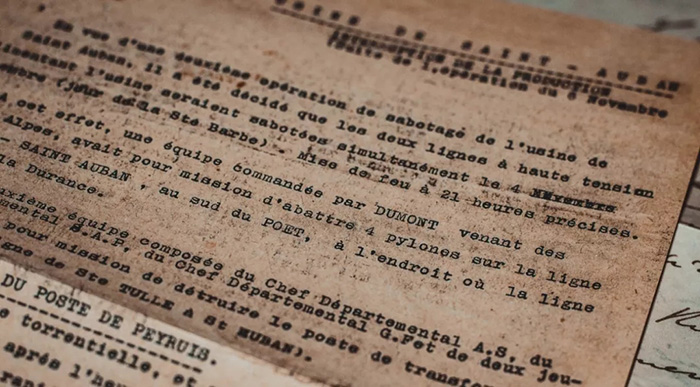 USINE DE SAINT - AUBAN
INTERRUPTION DE LA PRODUCTION
(Suite de l'opération du 6 Novembre
En vue d'une deuxième opération de sabotage de l'usine de
Saint Auban, il a été décidé que les deux lignes à haute tension
alimentant l'usine seraient sabotées simultanément le 4
(jour de la Ste Barbe) - Mise de feu à 21 heures précises.
A cet effet, une équipe commandée par DUMONT venant des
Alpes, avait pour mission d'abattre 4 pylones sur la ligne
- SAINT AUBAN ' au sud du POET, à l'endroit où la ligne
la Durance.
uxième équipe composée du Chef Départemental A.S, du
mental S.A.P, du Chef Départemental G.F et de deux jeu-
pour mission de détruire le poste de transfo
gne de Ste TULLE A St
DU POSTE DE PEYRUIS.
e torrentielle, et
après l'heu